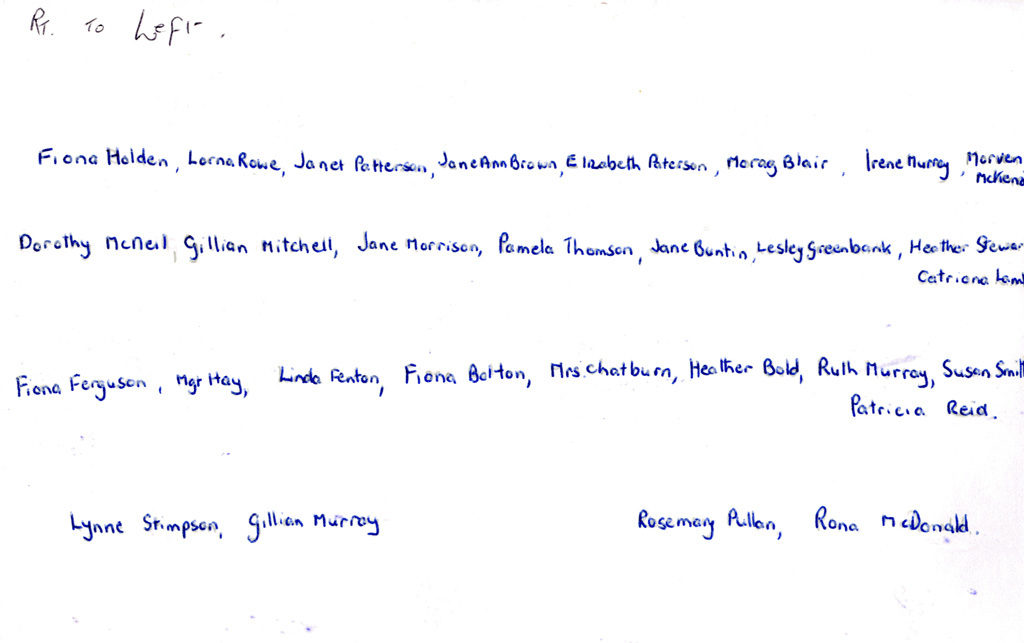 RT. To Left.
Fiona Holden, Lorna Rowe, Janet Patterson, Jane Ann Brown, Elizabeth Paterson, Morag Blair, Irene Murray, Morven
McKenz
Dorothy McNeil, Gillian Mitchell, Jane Morrison, Pamela Thomson, Jane Buntin, Lesley Greenbank, Heather Stewar
Catriona Lam
Fiona Ferguson, Mgr Hay, Linda Fenton, Fiona Bolton, Mrs. Chatburn, Heather Bold, Ruth Murray, Susan Smit
Patricia Reid.
Lynne Stimpson, Gillian Murray Rosemary Pullan, Rona McDonald.